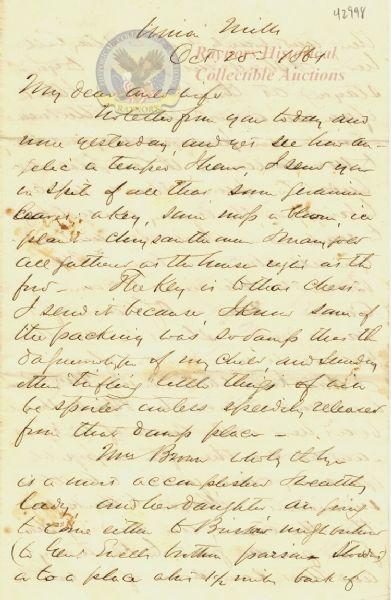 42998
Union Mills
Oct 25th 1861
Raynors' Historical
Collectible Auctions
RAYNORS'
My dear wife
No letter from you today and
none yesterday and yet see how an-
gelic a temper I have, I send you
in spite of all that some geranium
leaves, a key, some moss a bloom, ice
plant - chrysanthemum & marigold
all gathered at the house right at the
ford - The key is to that chest.
I send it because, I know some of
the packing was so damp that the
daguerreotype of my child, and sundry
other trifling little things of
be spoiled unless speedily released
from that damp place -
Mrs Brown
is a most accomplished & wealthy
lady, and her daughter are going
to come either to
(to Genl Ewells
or to a place abt 1 1/2 miles back of